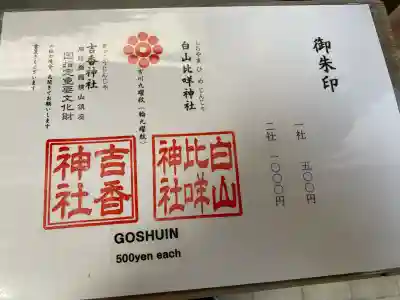 御朱印
一社　五〇〇円
二社　一〇〇〇円
しらやまひめじんじゃ
白山比咩神社
吉川九曜紋（輪九曜紋）
きっこうじんじゃ
吉香神社
国指定重要文化財
白山比咩神社
吉香神社
GOSHUIN
500yen each